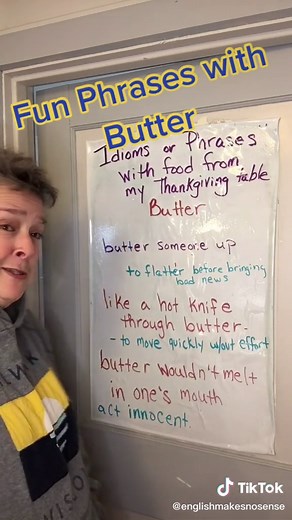 Fun Phrases with
Butter
Idioms or Phrases
with food from
my Thankgiving table
Butter
butter someone up
to flatter before bringing
bad news
like a hot knife
through butter-
- to move quickly w/out effort
butter wouldn't melt
in one's mouth
act innocent.
TikTok
@englishmakesnosense